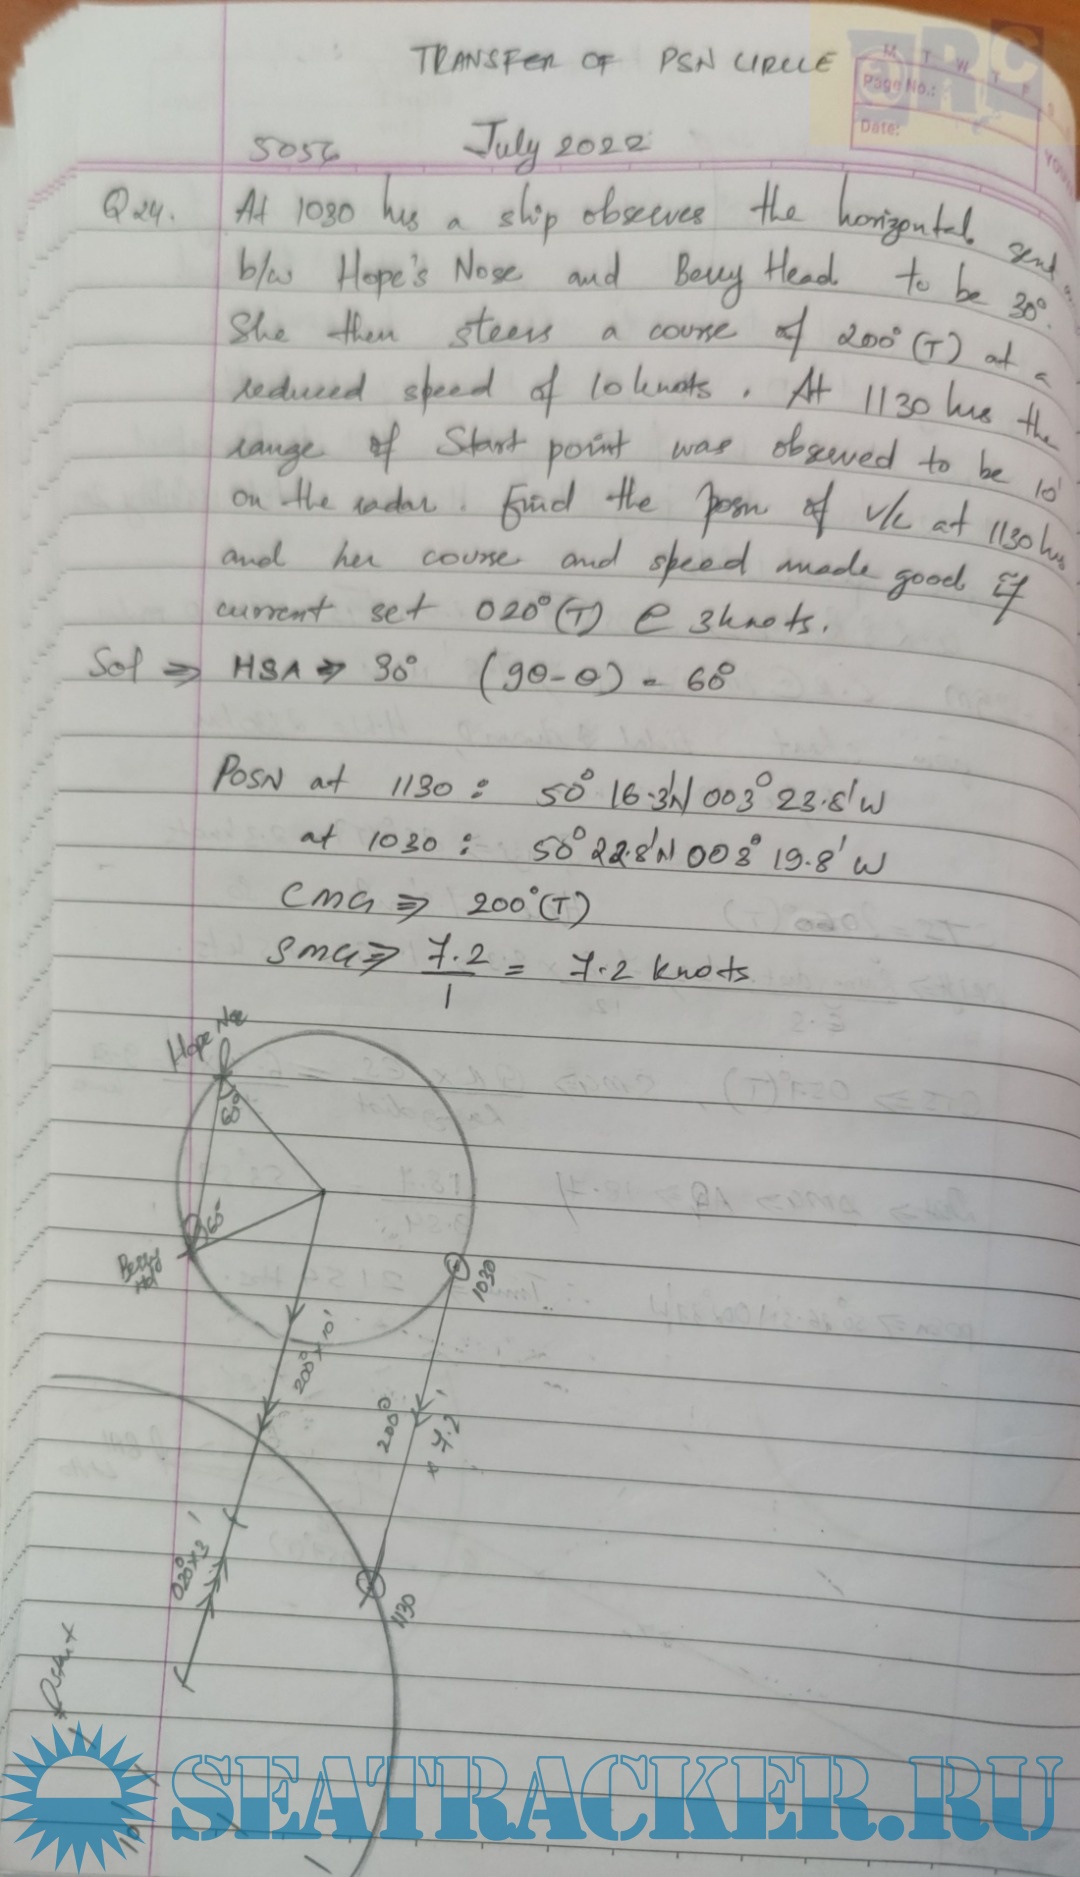 TRANSFER OF PSN CIRCLE
RC
M T W T F S
Page No.:
Date:
YOUVA
5056 July 2022
Q24. At 1030 hrs a ship observes the horizontal sext
b/w Hope's Nose and Berry Head to be 30°.
She then steers a course of 200° (T) at a
reduced speed of 10 knots. At 1130 hrs the
range of Start point was observed to be 10'
on the radar. Find the posn of v/l at 1130 hrs
and her course and speed made good if
current set 020° (T) @ 3knots.
Sol ⇒ HSA ⇒ 30° (90-θ) = 60°
POSN at 1130 : 50° 16.3'N 003° 23.8'W
at 1030 : 50° 22.8'N 003° 19.8' W
CMG ⇒ 200° (T)
SMG ⇒ 7.2/1 = 7.2 knots
Hope Nose
60°
60°
Berry Hd
1030
200° x 10'
200° x 7.2'
020° x 3'
1130
Start
10'
SEATRACKER.RU